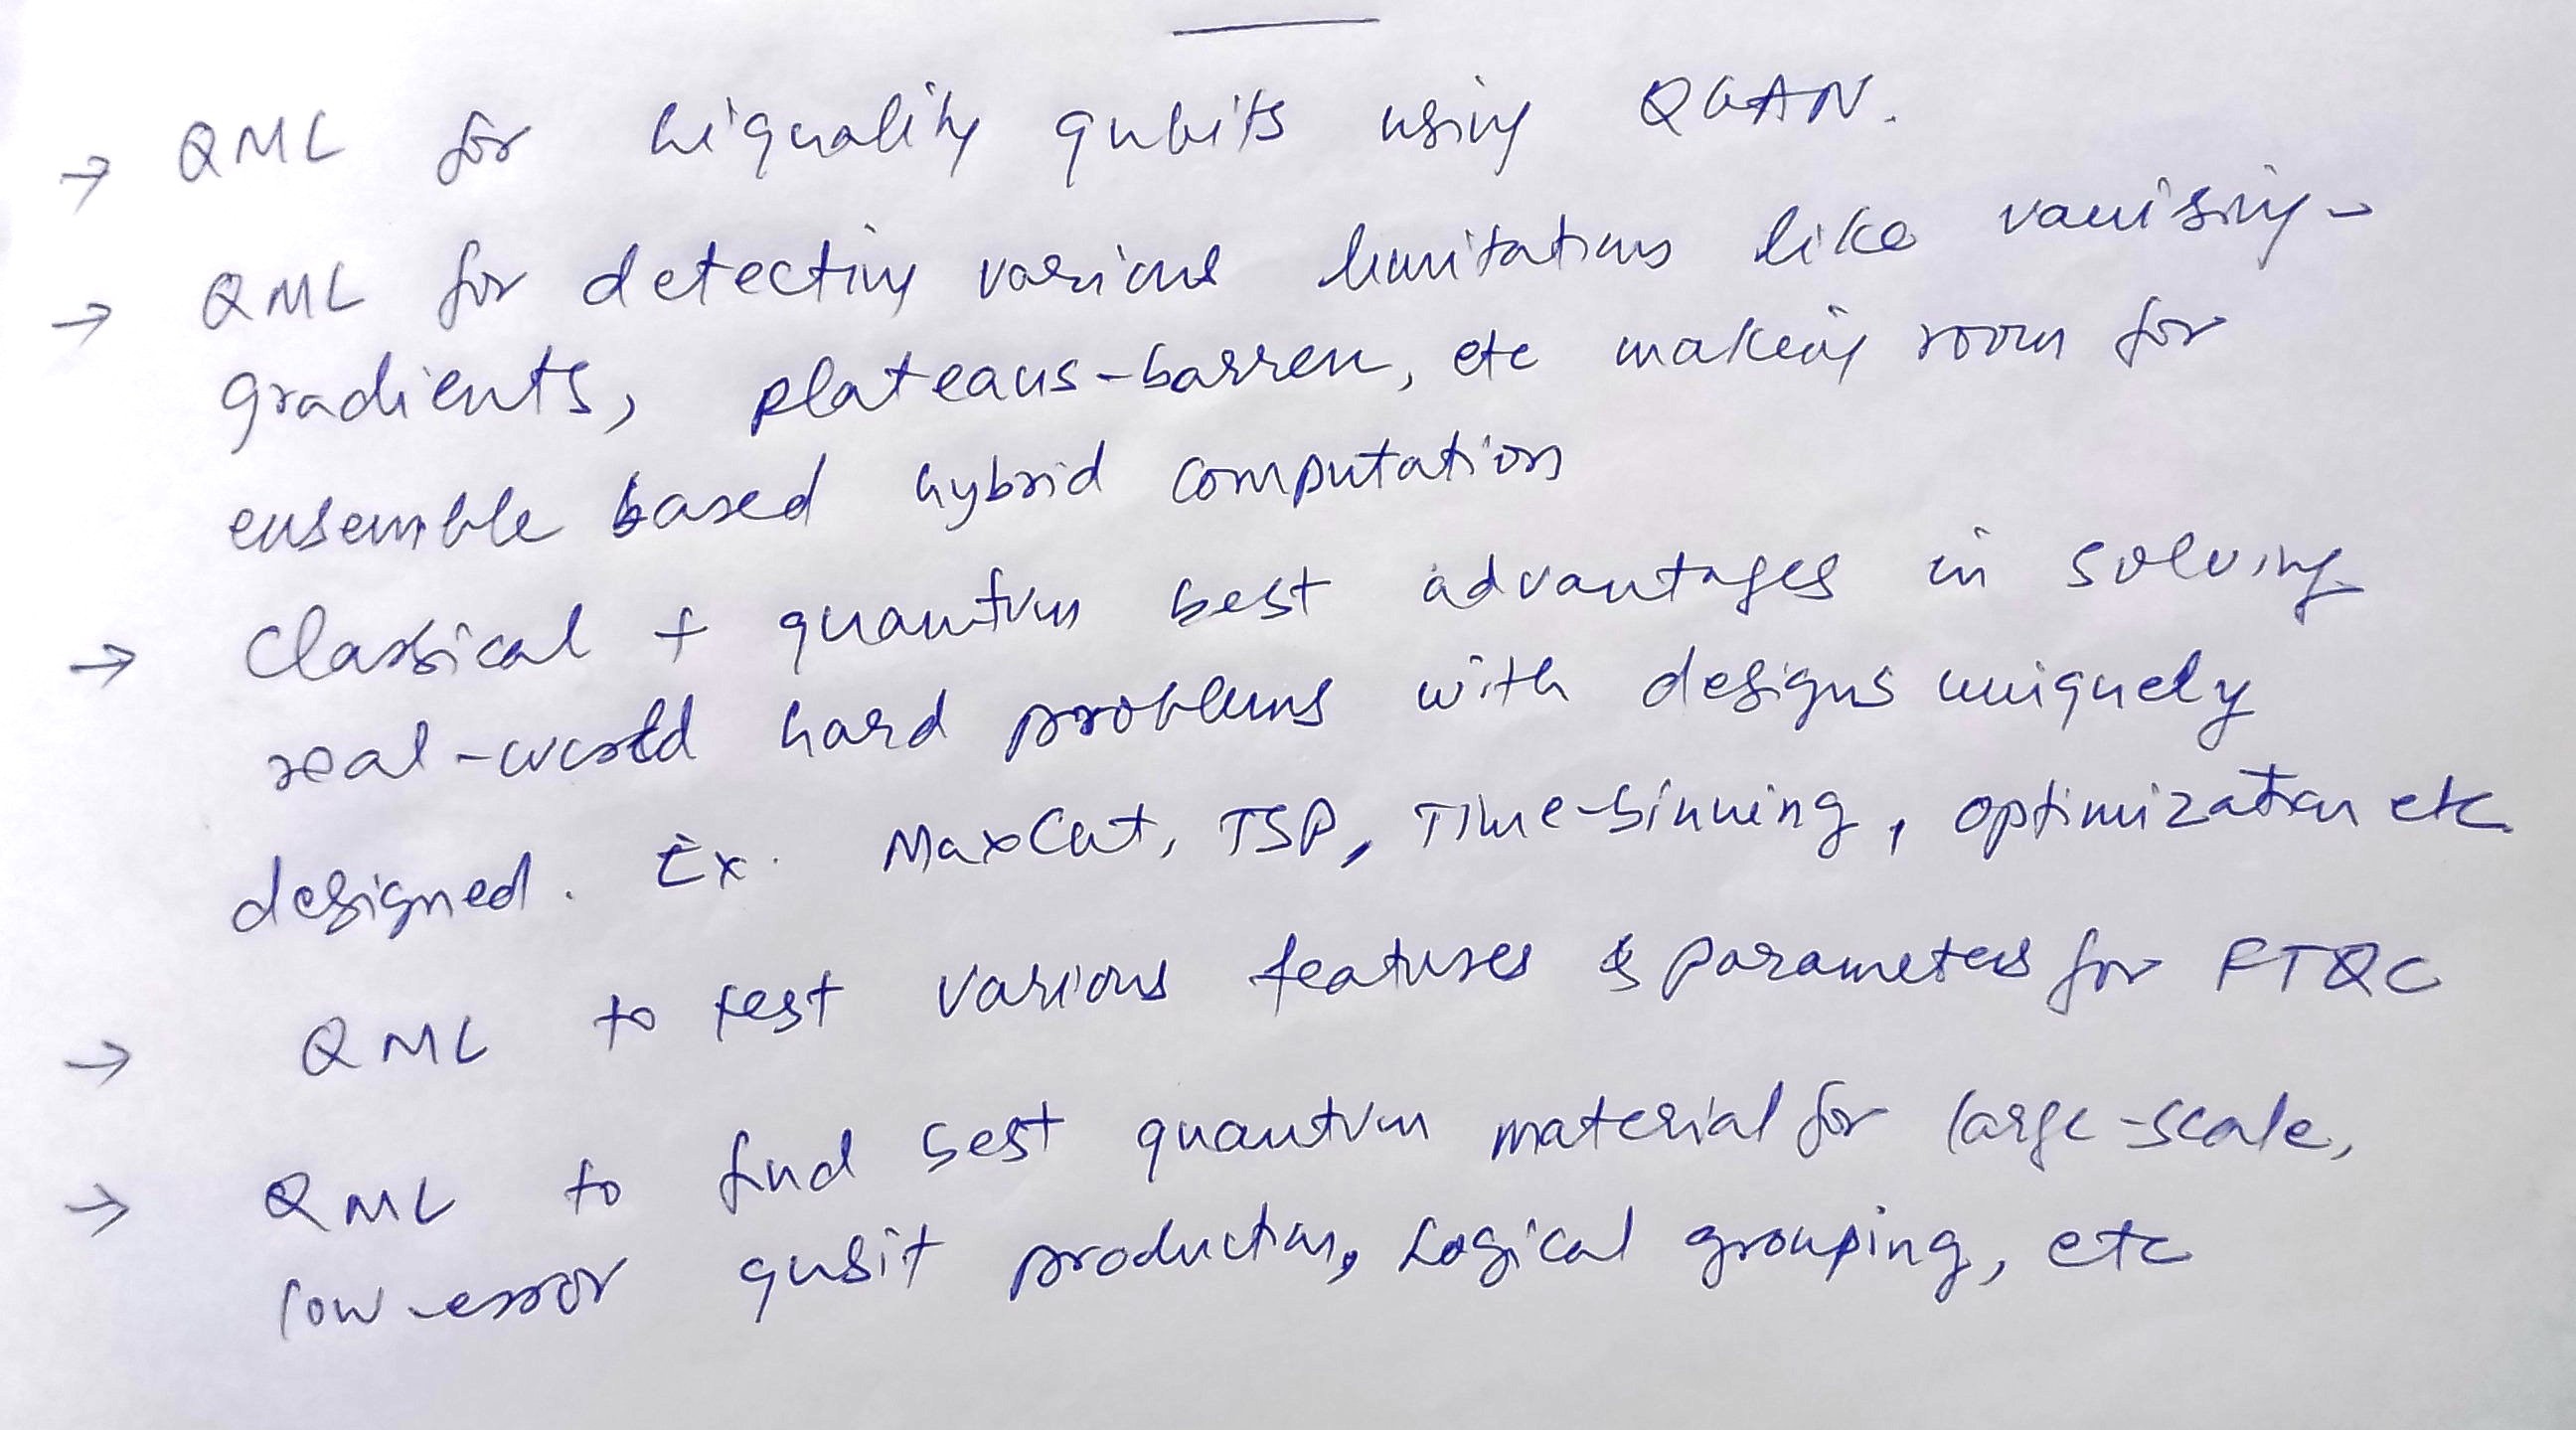 → QML for hiquality qubits using QGAN.
→ QML for detecting various limitations like vanising-
gradients, plateaus-barren, etc making room for
ensemble based hybrid computation
→ Classical + quantum best advantages in solving
real-world hard problems with designs uniquely
designed. Ex. MaxCut, TSP, Time-binning, optimization etc
→ QML to test various features & parameters for FTQC
→ QML to find best quantum material for large-scale,
low-error qubit production, Logical grouping, etc